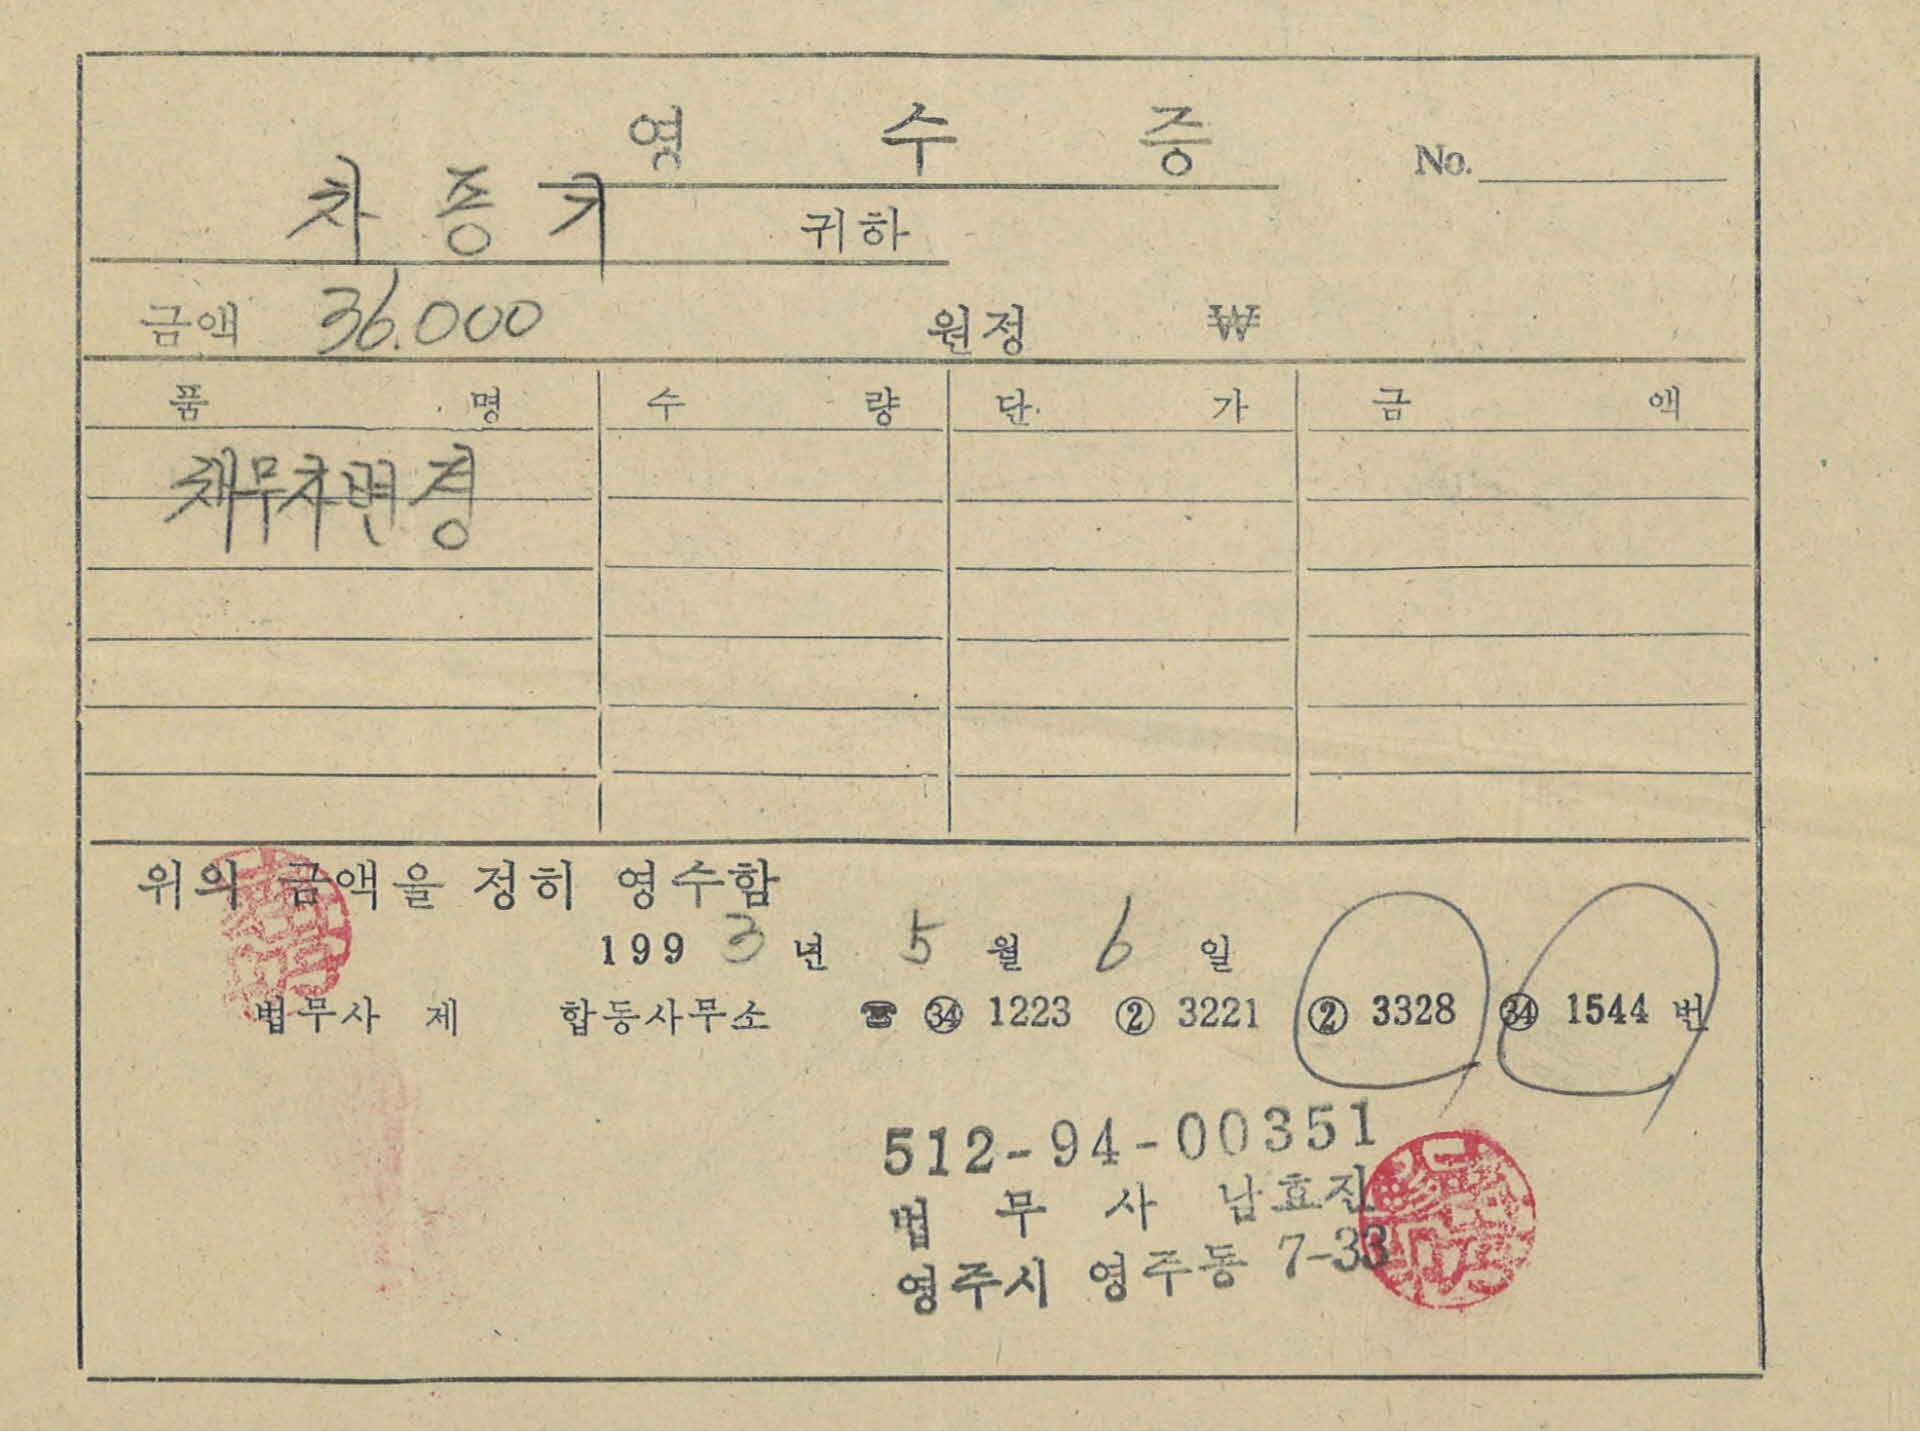 영 수 증 No.
차 중 기 귀하
금액 36.000 원정 ₩
품 명 수 량 단 가 금 액
채무자변경
위의 금액을 정히 영수함
1993년 5월 6일
법무사 제 합동사무소 ☎ ㉞ 1223 ② 3221 ② 3328 ㉞ 1544 번
512-94-00351
법 무 사 남효진
영주시 영주동 7-33